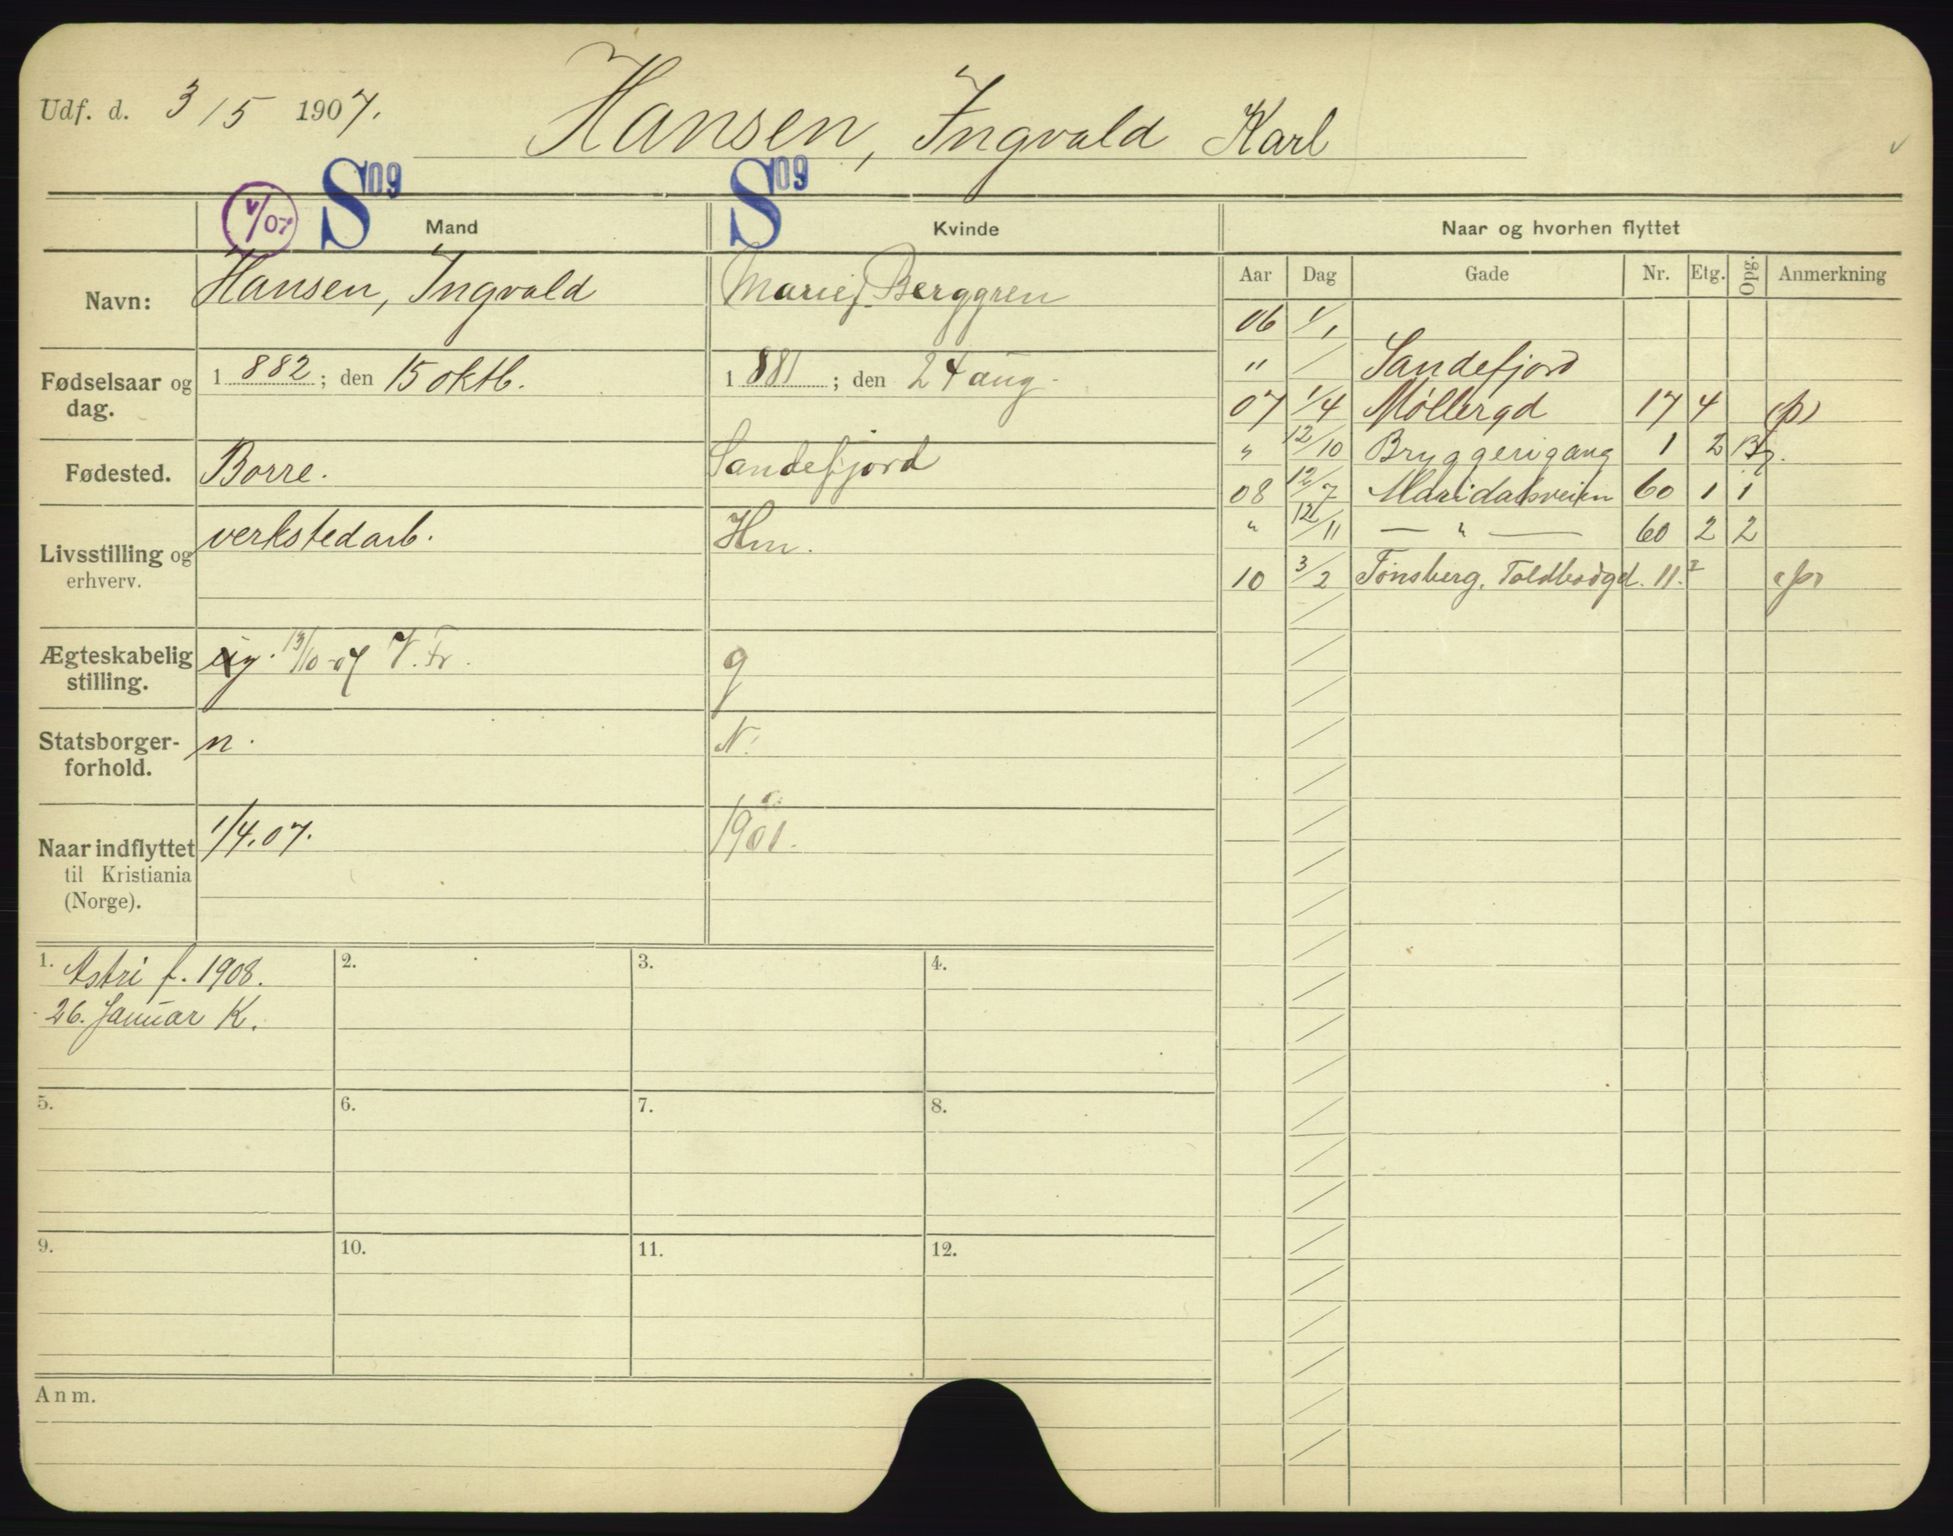 Udf. d. 3/5 1907. Hansen, Ingvald Karl
V/07 S 09 Mand S 09 Kvinde
Navn: Hansen, Ingvald Marie Berggren
Fødselsaar og dag. 1882; den 15 oktb. 1881; den 24 aug.
Fødested. Borre. Sandefjord
Livsstilling og erhverv. verkstedarb. Hm.
Ægteskabelig stilling. 13/10-07 V. Fr. g
Statsborgerforhold. n. N.
Naar indflyttet til Kristiania (Norge). 1/4.07. 1901.
1. Astri f. 1908.
26. Januar K.
2.
3.
4.
5.
6.
7.
8.
9.
10.
11.
12.
Anm.
Naar og hvorhen flyttet
Aar Dag Gade Nr. Etg. Opg. Anmerkning
06 1/1
" / Sandefjord
07 1/4 Møllergd 17 4 (p)
" 12/10 Bryggerigang 1 2 Bg.
08 12/7 Maridalsveien 60 1 1
" 12/11 — " — 60 2 2
10 3/2 Tønsberg, Toldbodgd. 11.2 (p)